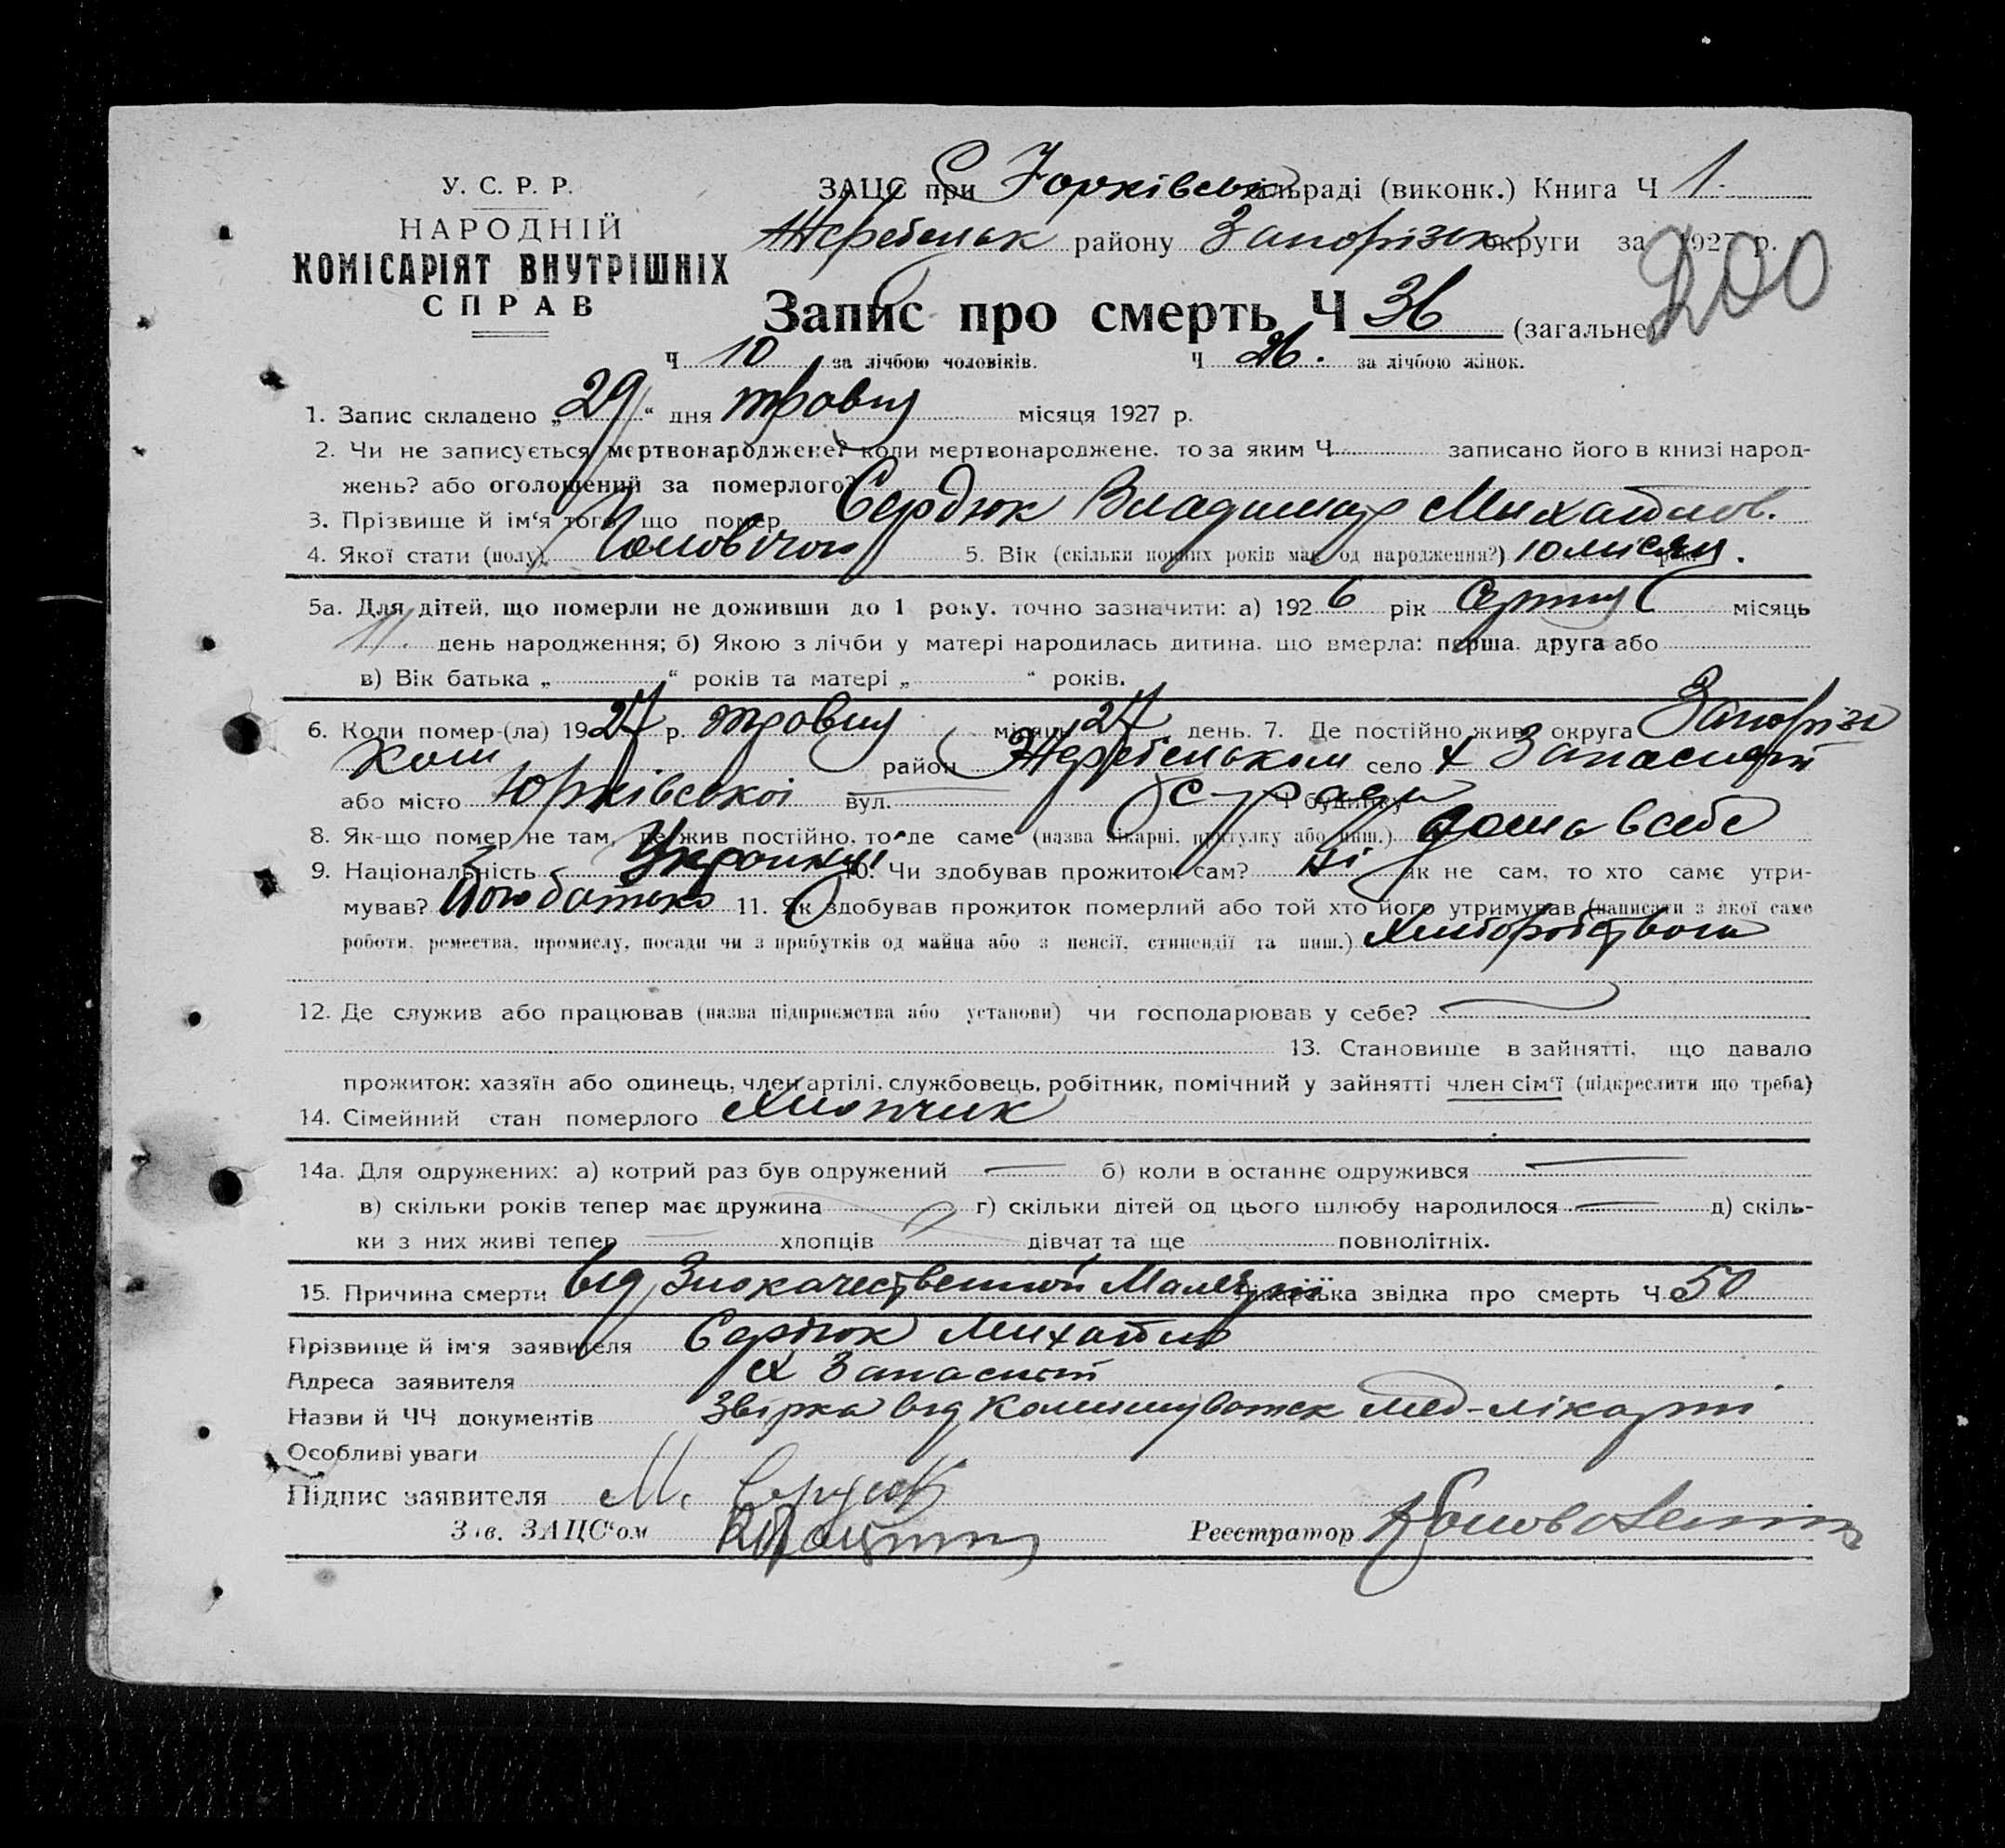 У. С. Р. Р.
НАРОДНІЙ
КОМІСАРІЯТ ВНУТРІШНІХ
СПРАВ
ЗАЦС при Юрківськ сільраді (виконк.) Книга Ч 1
Жеребецьк району Запорізьк округи за 1927 р.
200
Запис про смерть Ч 36 (загальне)
Ч 10 за лічбою чоловіків. Ч 26. за лічбою жінок.
1. Запис складено „29“ дня травня місяця 1927 р.
2. Чи не записується мертвонароджене? коли мертвонароджене, то за яким Ч записано його в книзі народ-
жень? або оголошений за померлого?
3. Прізвище й ім‘я того, що помер Сердюк Владимир Михайлов.
4. Якої стати (полу) Чоловічої 5. Вік (скільки повних років мав од народження?) 10 місяц. рок
5а. Для дітей, що померли не доживши до 1 року, точно зазначити: а) 1926 рік Серпня місяць
11. день народження; б) Якою з лічби у матері народилась дитина, що вмерла: перша, друга або
в) Вік батька „ “ років та матері „ “ років.
6. Коли помер-(ла) 1927 р. травня місяць 27 день. 7. Де постійно жив: округа Запорізь
кой район Жеребецьком село х Запасний
або місто Юрківської вул. с-ради Ч будинку
8. Як-що помер не там, де жив постійно, то де саме (назва лікарні, притулку або инш.) дома в себе
9. Національність Українец 10. Чи здобував прожиток сам? Ні як не сам, то хто саме утри-
мував? Його батько 11. Як здобував прожиток померлий або той хто його утримував (написати з якої саме
роботи, ремества, промислу, посади чи з прибутків од майна або з пенсії, стипендії та инш.) Хліборобством
12. Де служив або працював (назва підприємства або установи) чи господарював у себе?
13. Становище в зайнятті, що давало
прожиток: хазяїн або одинець, член артілі, службовець, робітник, помічний у зайнятті член сім‘ї (підкреслити що треба)
14. Сімейний стан померлого Хлопчик
14а. Для одружених: а) котрий раз був одружений б) коли в останнє одружився
в) скільки років тепер має дружина г) скільки дітей од цього шлюбу народилося д) скіль-
ки з них живі тепер хлопців дівчат та ще повнолітніх.
15. Причина смерти від Злокачественной Малярії Лікарська звідка про смерть Ч 50
Прізвище й ім‘я заявителя Сердюк Михайло
Адреса заявителя х Запасний
Назви й ЧЧ документів від мед-лікарні
Особливі уваги
Підпис заявителя М. Сердюк
Зав. ЗАЦС‘ом
Реєстратор